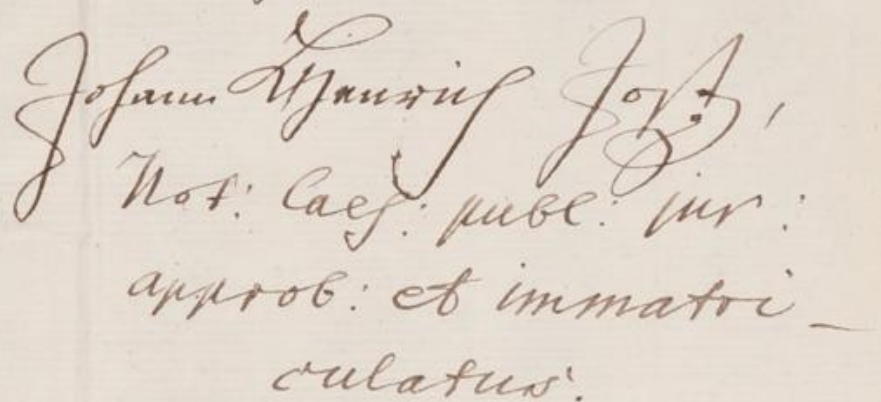 Johann Henrich Jost,
Not: Caes: publ: jur:
approb: et immatri-
culatus.